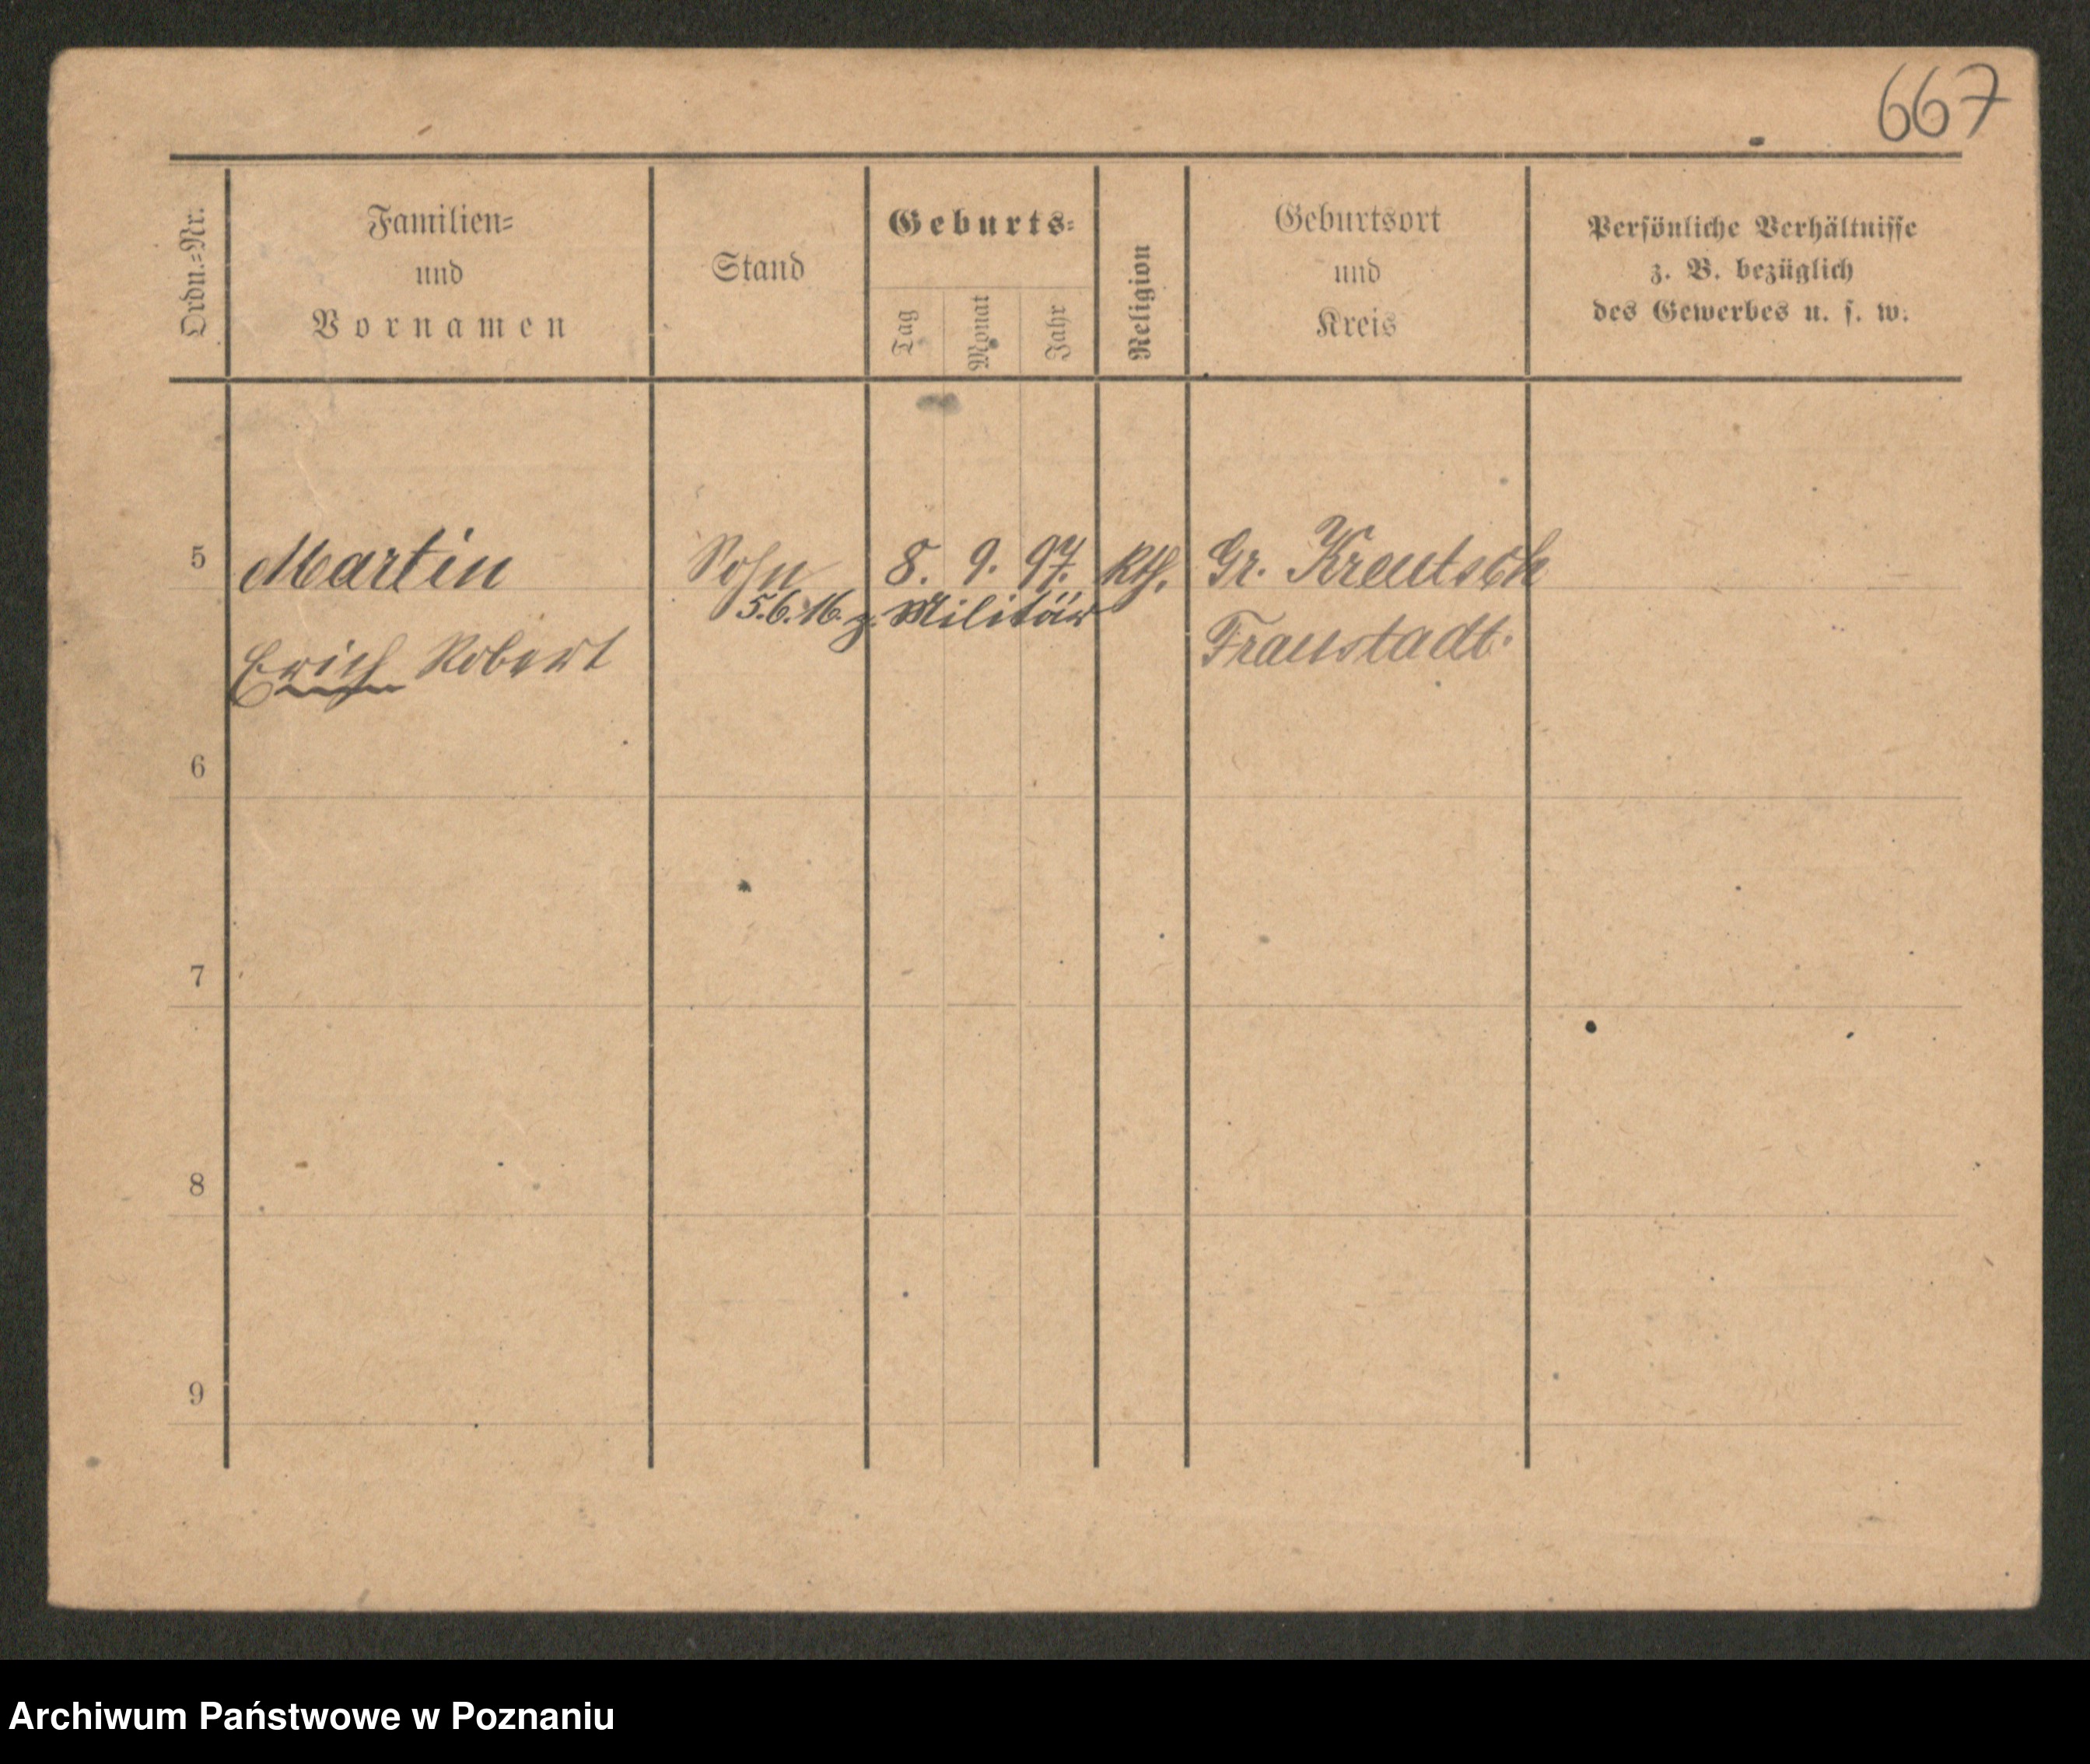 667
Ordn.=Nr.
Familien=
und
Vornamen
Stand
Geburts=
Tag
Monat
Jahr
Religion
Geburtsort
und
Kreis
Persönliche Verhältnisse
z. B. bezüglich
des Gewerbes u. s. w.
5 Martin Sohn 8. 9. 97. Kth. Gr. Kreutsch
5.6.16. z. Militär
Erich Robert Fraustadt.
6
7
8
9
Archiwum Państwowe w Poznaniu